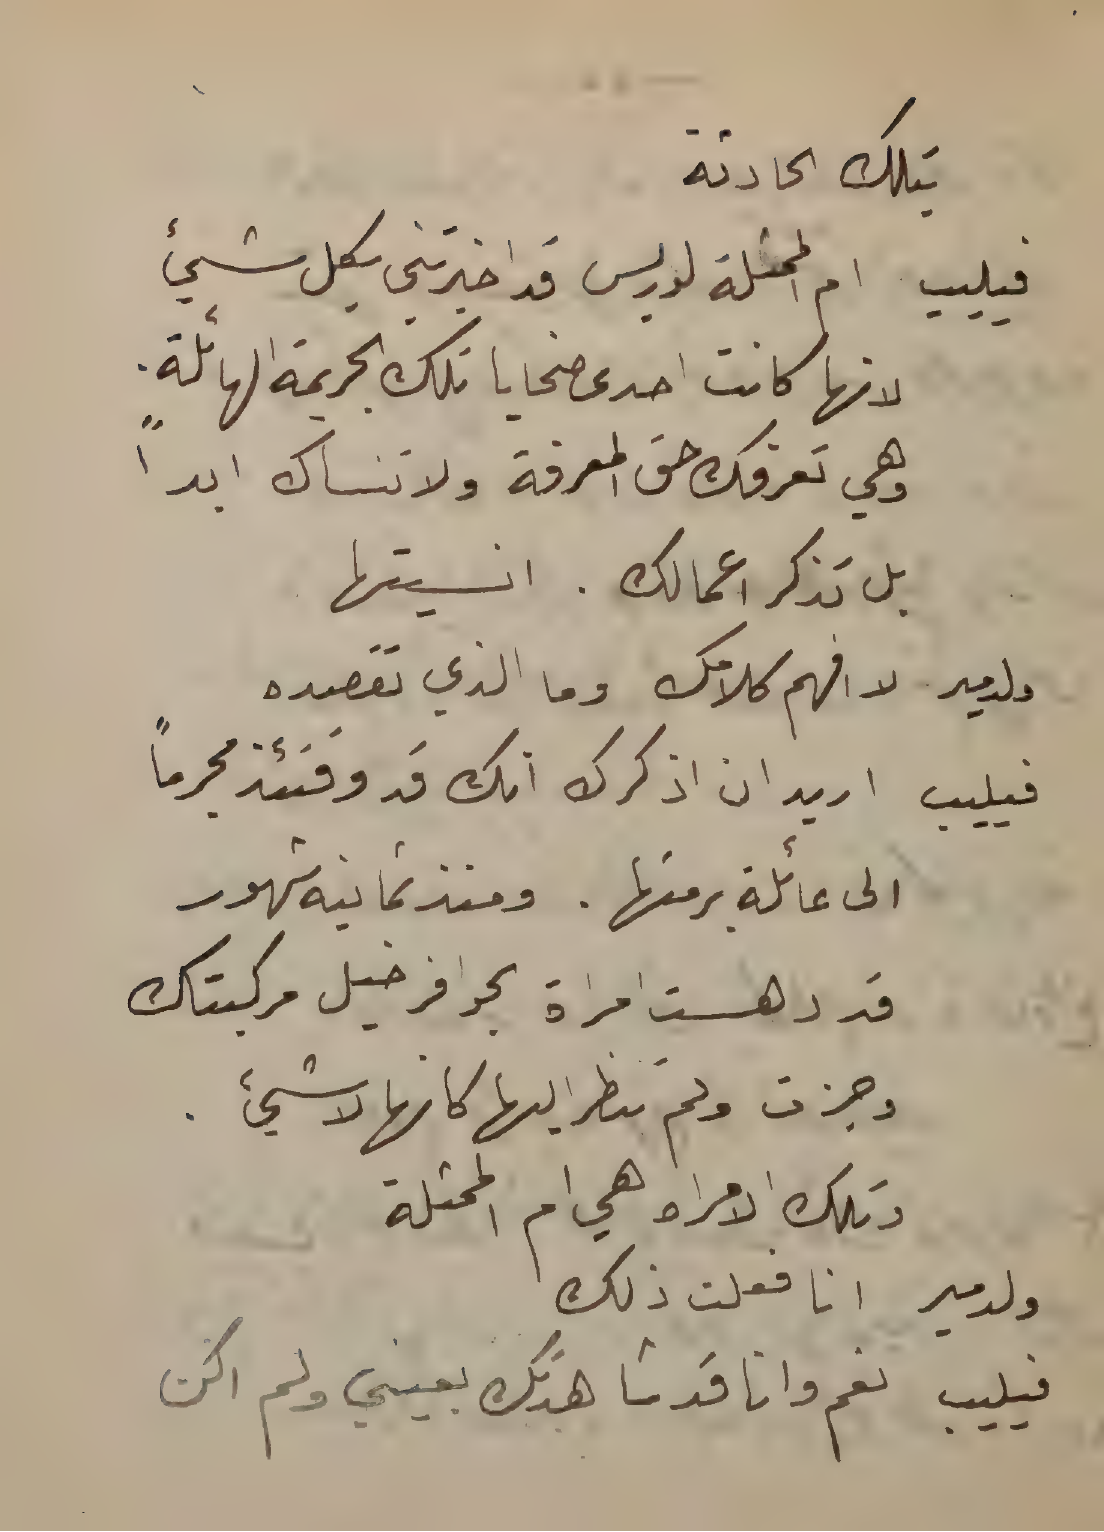 بتلك الحادثة
فيليب ام الممثلة لوريس قد اخبرتني بكل شيئ
لانها كانت احدى ضحايا تلك الجريمة الهائلة.
وهي تعرفك حق المعرفة ولا تنساك ابداً
بل تذكر اعمالك . انسيتها
ولدمير لا افهم كلامك وما الذي تقصده
فيليب اريد ان اذكرك انك قد وقتئذ مجرماً
الى عائلة برمتها . ومنذ ثمانية شهور
قد دهست امراة بحوافر خيل مركبتك
وجزت ولم تنظر اليها كانها لا شيئ .
وتلك الامراه هي ام الممثلة
ولدمير انا فعلت ذلك
فيليب نعم وانا قد شاهدتك بعيني ولم اكن